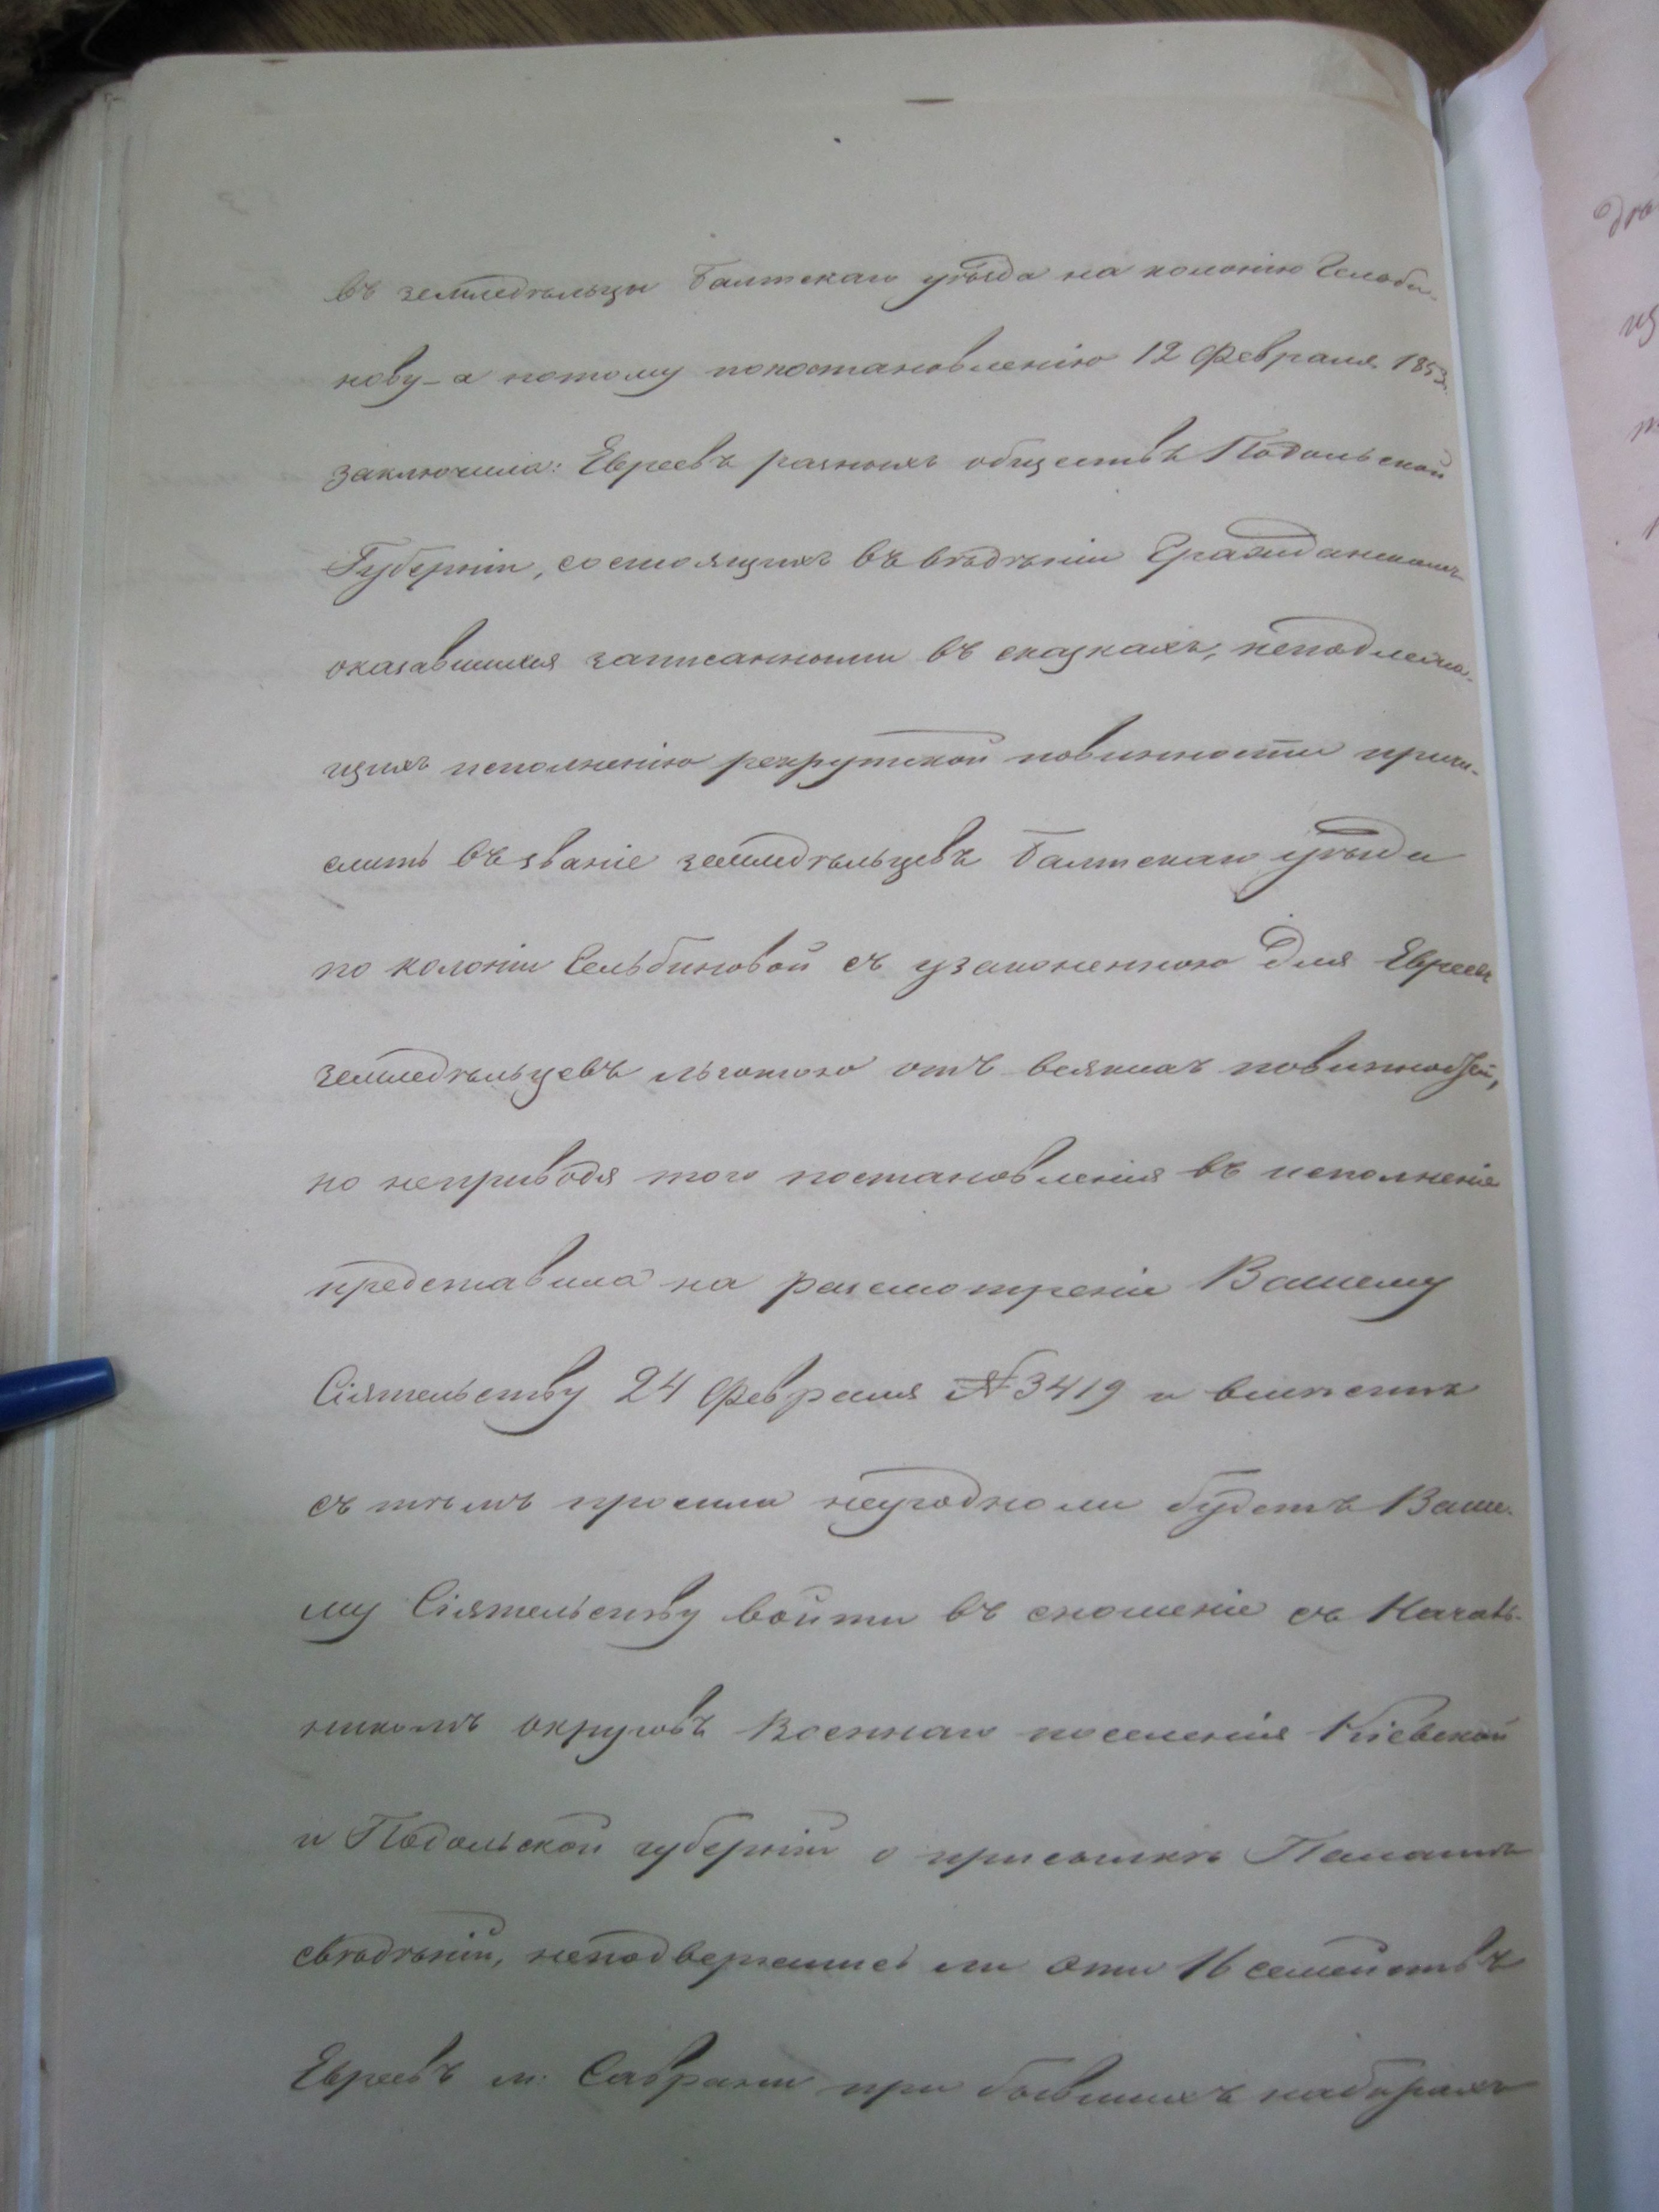 въ земледѣльцы Балтскаго уѣзда на колонію Гельби-
нову – а потому попостановленію 12 Февраля 1853
заключила: Евреевъ разныхъ обществъ Подольской
Губерніи, состоящихъ въ вѣдѣніи Гражданскомъ
оказавшихся записанными въ сказкахъ, неподлежа-
щихъ исполненію рекрутской повинности причи-
слить въ званіе земледѣльцевъ Балтскаго уѣзда
по колоніи Сельбиновой съ узаконенною для Евреевъ
земледѣльцевъ льготою отъ всякихъ повинностей,
но неприводя того постановленія въ исполненіе
представила на разсмотреніе Вашему
Сіятельству 24 Февраля № 3419 и вмѣстѣ
съ тѣмъ просила неугодноли будетъ Ваше-
му Сіятельству войти въ сношеніе съ Началь-
никомъ округовъ Военнаго поселенія Кіевской
и Подольской губерній о присылкѣ Палатѣ
свѣдѣній, неподвергались ли эти 16 семействъ
Евреевъ м: Саврани при бывшихъ наборахъ